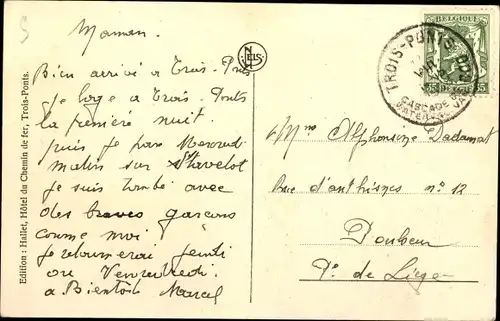 Maman.
Bien arrivé a Trois. Ponts
je loge a Trois. Ponts
la première nuit.
puis je pars Mercredi
matin sur Stavelot
je suis tombé avec
des braves garçons
comme moi!
je retournerai jeudi
ou Vendredi.
a Bientôt Marcel
Edition: Hallet, Hôtel du Chemin de fer, Trois-Ponts.
NELS
BELGIQUE
35
BELGIE
35
TROIS-PONTS
CASCADE DE
Mme Alphonsine Dadamat
Rue d'anthisnes n° 12
Poulseur
Pce de Liège